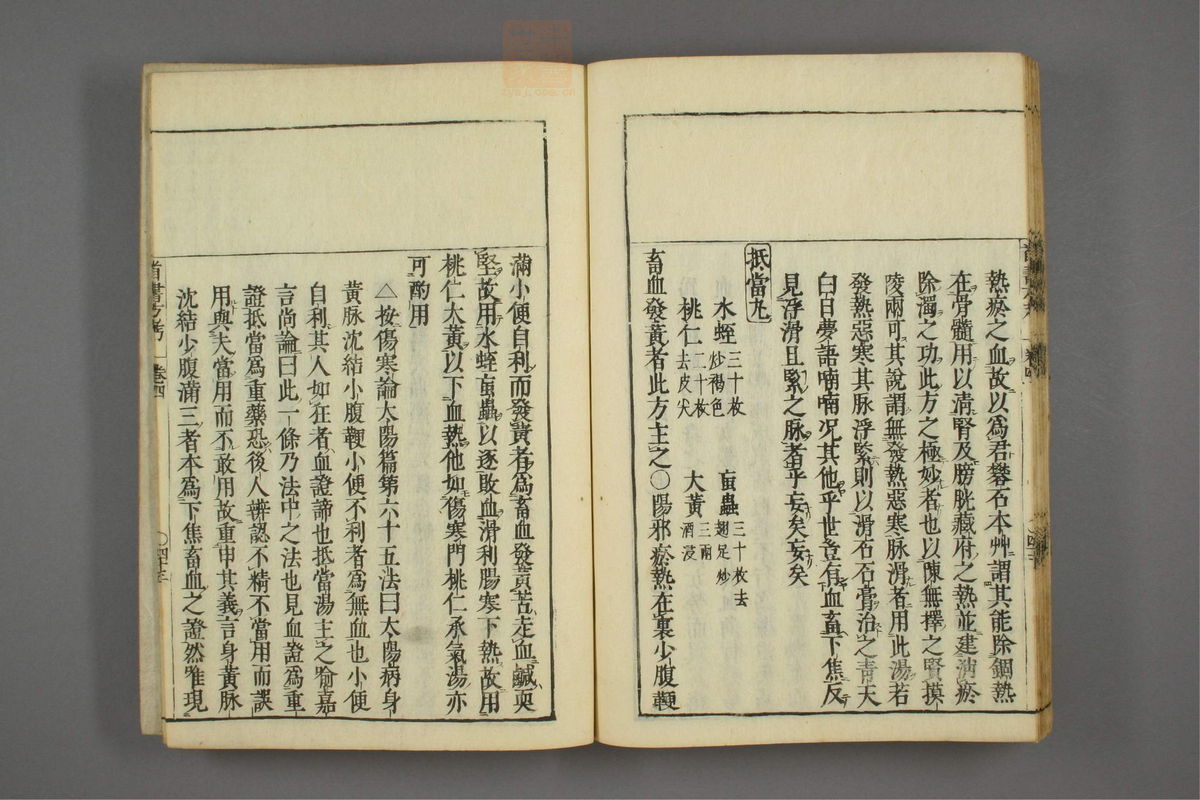 熱瘀之血故以爲君礬石本艸謂其能除錮熱
在骨髓用以清腎及膀胱藏府之熱並建消瘀
除濁之功此方之極妙者也以陳無擇之賢摸
陵兩可其說謂無發熱惡寒脉滑者用此湯若
發熱惡寒其脉浮緊則以滑石石膏治之青天
白日夢語喃喃况其他乎世豈有血畜下焦反
見浮滑且緊之脉者乎妄矣妄矣
抵當丸
水蛭三十枚炒褐色
䖟蟲三十枚去翅足炒
桃仁二十枚去皮尖
大黃三兩酒浸
畜血發黃者此方主之〇陽邪瘀熱在裏少腹鞕
滿小便自利而發黃者爲畜血發黃苦走血鹹耎
堅故用水蛭䖟蟲以逐敗血滑利腸寒下熱故用
桃仁大黃以下血熱他如傷寒門桃仁承氣湯亦
可酌用
△按傷寒論太陽篇第六十五法曰太陽病身
黃脉沈結小腹鞕小便不利者爲無血也小便
自利其人如狂者血證諦也抵當湯主之喻嘉
言尚論曰此一條乃法中之法也見血證爲重
證抵當爲重藥恐後人辨認不精不當用而誤
用與夫當用而不敢用故重申其義言身黃脉
沈結少腹滿三者本爲下焦畜血之證然雅現
卷四
〇四十三